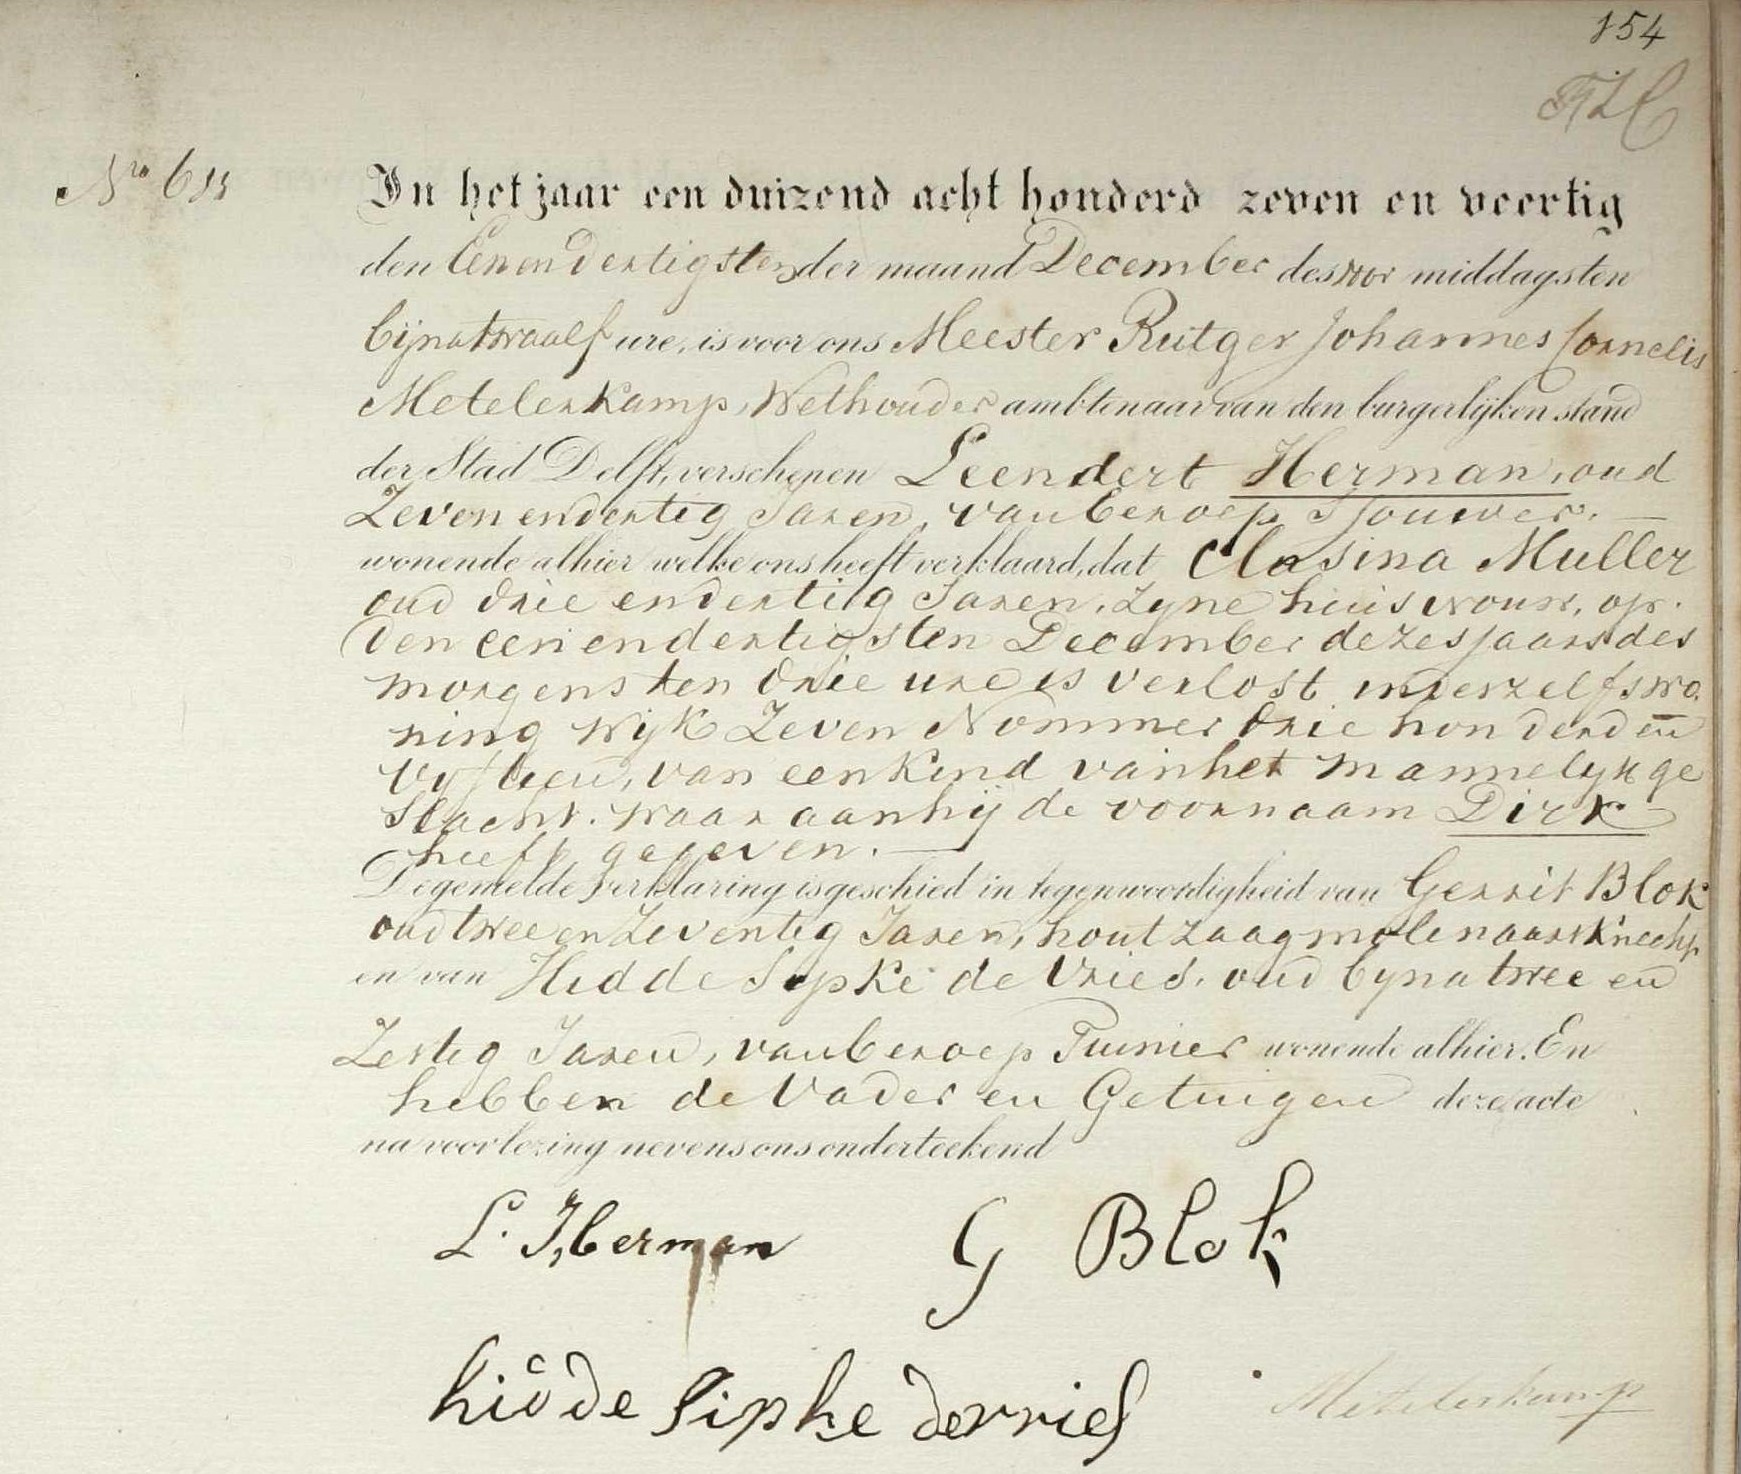 154
Nro 611
In het jaar een duizend acht honderd zeven en veertig
den Eenendertigsten der maand December des voor middags ten
bijna twaalf ure, is voor ons Meester Rutger Johannes Cornelis
Metelerkamp, Wethouder ambtenaar van den burgerlijken stand
der Stad Delft, verschenen Leendert Herman, oud
Zeven endertig Jaren, van beroep Sjouwer.
wonende alhier welke ons heeft verklaard, dat Clasina Muller
oud drie endertig Jaren, zyne huisvrouw, op
den eenendertigsten December dezes jaars des
morgens ten drie ure is verlost in derzelfs wo
ning Wijk Zeven Nommer drie honderd en
vyftien, van een kind van het mannelyk ge
slacht. waar aan hij de voornaam Dirk
heeft gegeven.
De gemelde verklaring is geschied in tegenwoordigheid van Gerrit Blok
oud twee en Zeventig Jaren, houtzaagmolenaarsknecht
en van Hidde Sipke de Vries. oud bynа twee en
Zestig Jaren, van beroep Tuinier wonende alhier. En
hebben de Vader en Getuigen deze acte
na voorlezing nevens ons onderteekend
L. Herman G Blok
hidde Sipke devries
Metelerkamp